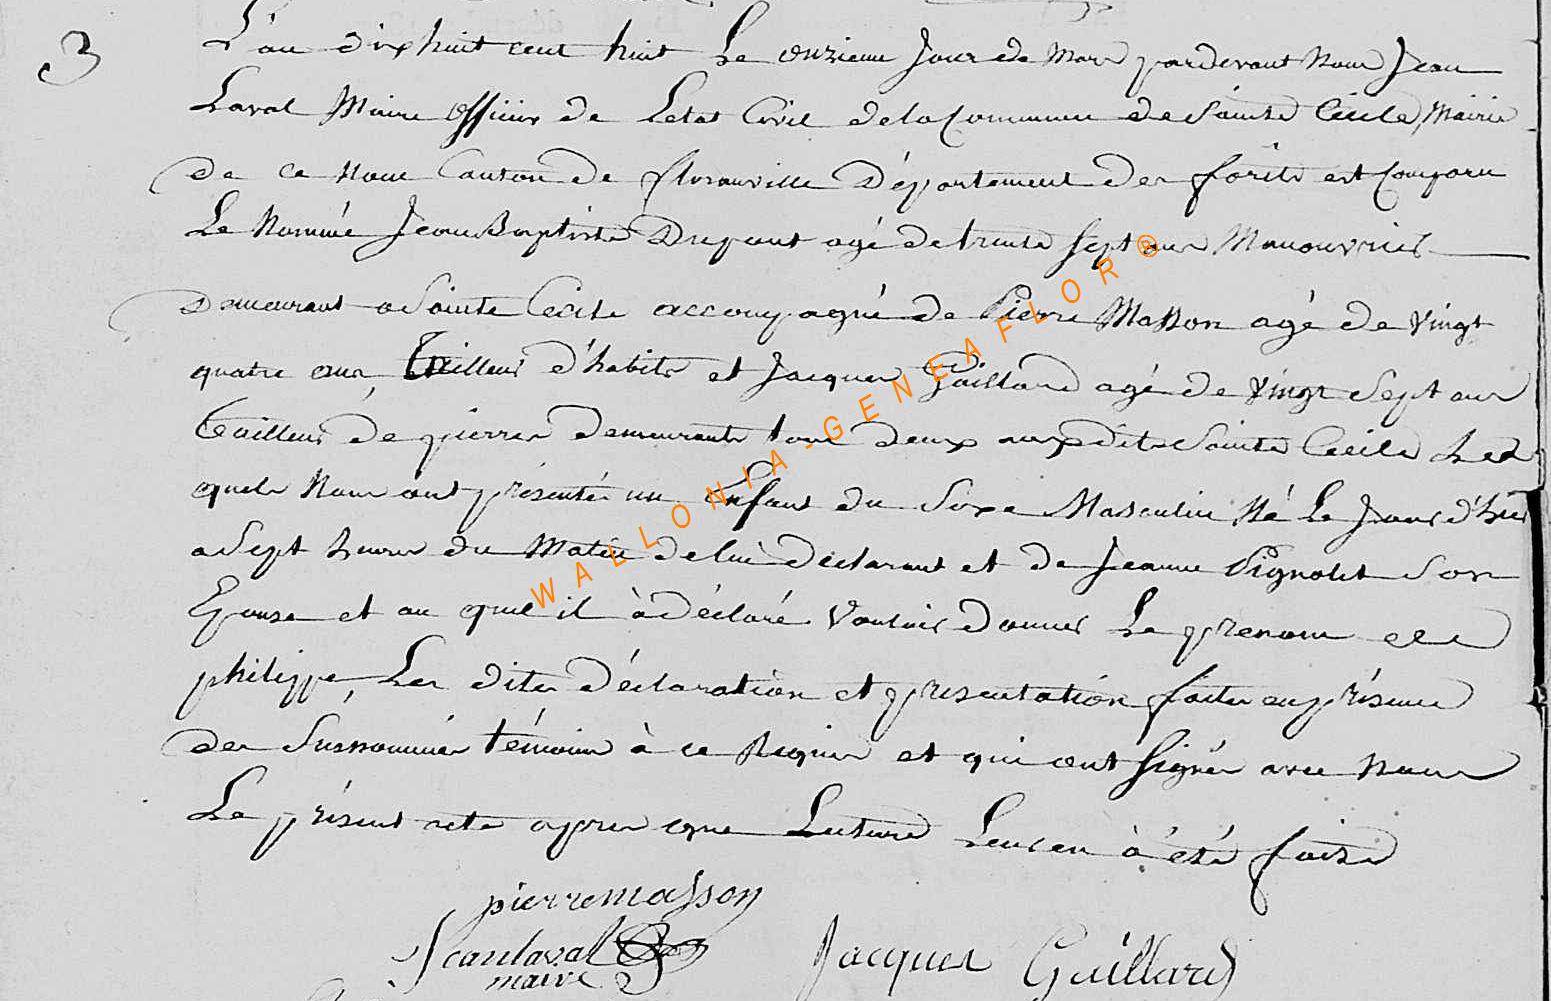 3
L'an dixhuit cent huit Le onzieme Jour de Mars pardevant Nous Jean
Laval Maire officier de Letat Civil de la Commune de Sainte Cécile, Mairie
de ce Nom Canton de florenville Département des forêts est Comparu
Le Nommé Jean Baptiste Dupont agé de trente Sept ans Manouvrier
Demeurant a Sainte Cecile accompagné de Pierre Masson agé de vingt
quatre ans, Tailleur d'habits et Jacques Gaillard agé de vingt Sept ans
Tailleur de pierres demeurants tous deux audit Sainte Cecile Les
quels Nous ont présentés un Enfant du Sexe Masculin Né Le Jour d'hier
a Sept heures du Matin de lui déclarant et de Jeanne Pignolet Son
Epouse et au quel il à déclaré Vouloir donner Le prenom de
philippe, Les dites déclaration et présentation faites en présence
des Susnommés témoins à ce Requis et qui ont Signés avec Nous
Le présent acte apres que Lecture Leur en à été faite
pierre masson
Jean laval
maire
Jacques Gaillard
WALLONIA-GENEAFLOR®